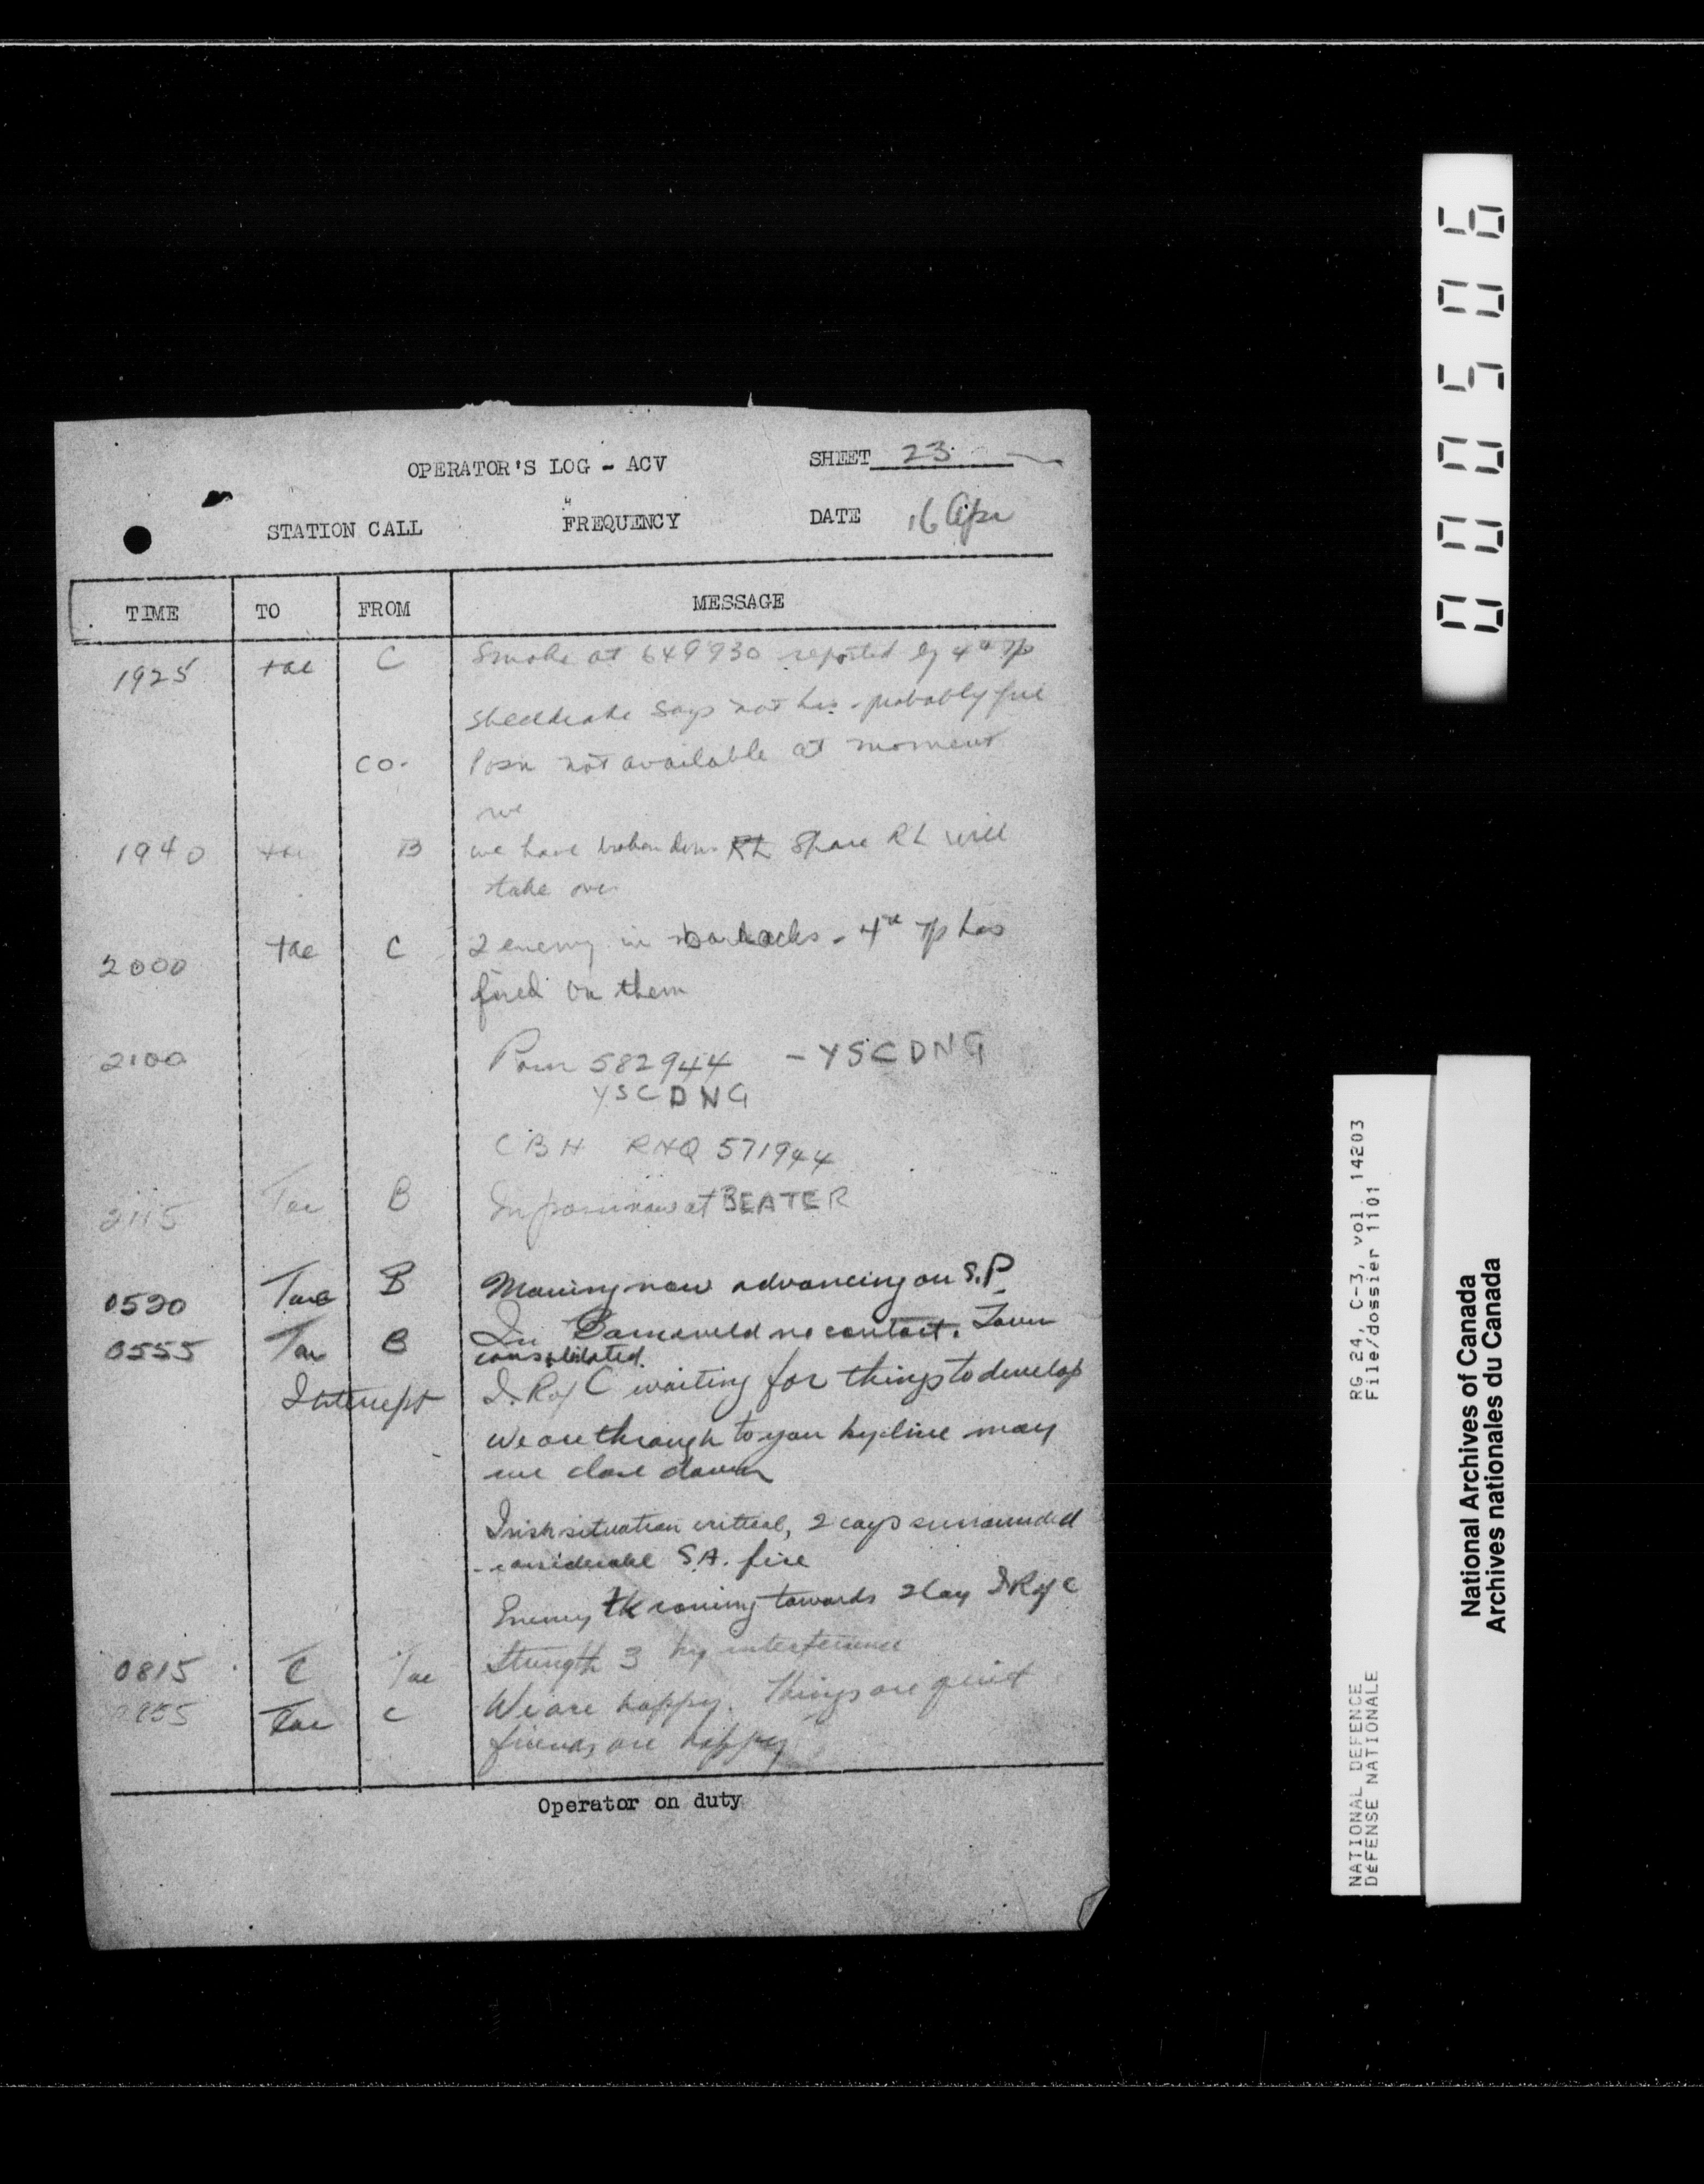 OPERATOR'S LOG - ACV SHEET 23
STATION CALL FREQUENCY DATE 16 Apr
TIME TO FROM MESSAGE
1925 tac C Smoke at 649930 reported by 4th Tp
says not his - probably
CO. Posn not available at moment
we
1940 tac B we have broken down RL Spare RL will
take over
2000 tac C 2 enemy in barracks - 4th Tp has
fired on them
2100 Posn 582944 - YSCDNG
YSCDNG
CBH RHQ 571944
2115 Tac B In posn now at BEATER
0520 Tac B Moving now advancing on S.P.
0555 Tac B In Barneveld no contact. Town
consolidated.
Intercept I. R of C waiting for things to develop
We are through to you by line may
we close down
Irish situation critical, 2 coys surrounded
considerable S.A. fire
Enemy tk coming towards 2 Coy I R of C
0815 C Tac Strength 3 hy interference
0855 Tac C We are happy. Things are quiet
friends are happy
Operator on duty
000506
RG 24, C-3, vol. 14203
File/dossier 1101
NATIONAL DEFENCE
DÉFENSE NATIONALE
National Archives of Canada
Archives nationales du Canada